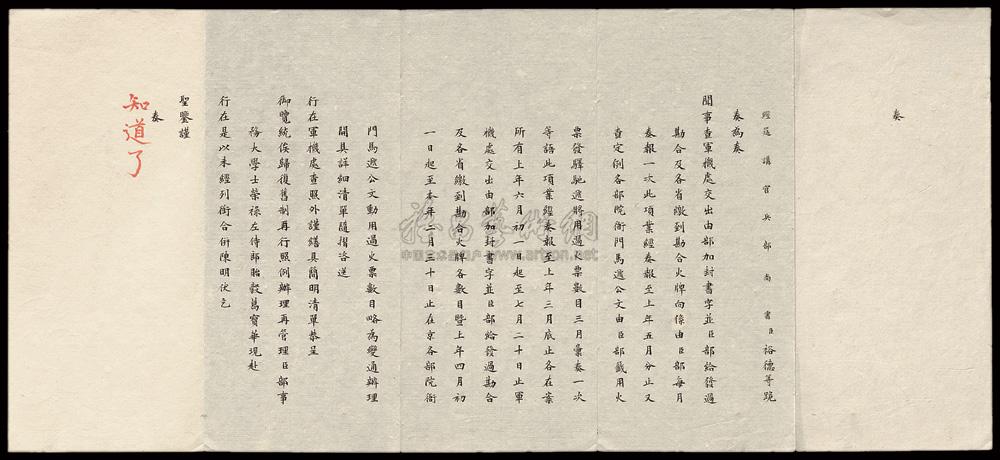 奏
經筵講官兵部尚書臣裕德等跪
奏為奏
聞事查軍機處交出由部加封書字並臣部給發過
勘合及各省繳到勘合火牌向係由臣部每月
奏報一次此項業經奏報至上年五月分止又
查定例各部院衙門馬遞公文由臣部籤用火
票發驛馳遞將用過火票數目三月彙奏一次
等語此項業經奏報至上年三月底止各在案
所有上年六月初一日起至七月二十日止軍
機處交出由部加封書字並臣部給發過勘合
及各省繳到勘合火牌各數目暨上年四月初
一日起至本年二月三十日止在京各部院衙
門馬遞公文動用過火票數目略為變通辦理
開具詳細清單隨摺咨送
行在軍機處查照外謹繕具簡明清單恭呈
御覽統俟歸復舊制再行照例辦理再管理臣部事
務大學士榮祿左侍郎貽穀葛寶華現赴
行在是以未經列銜合併陳明伏乞
聖鑒謹
奏
知道了